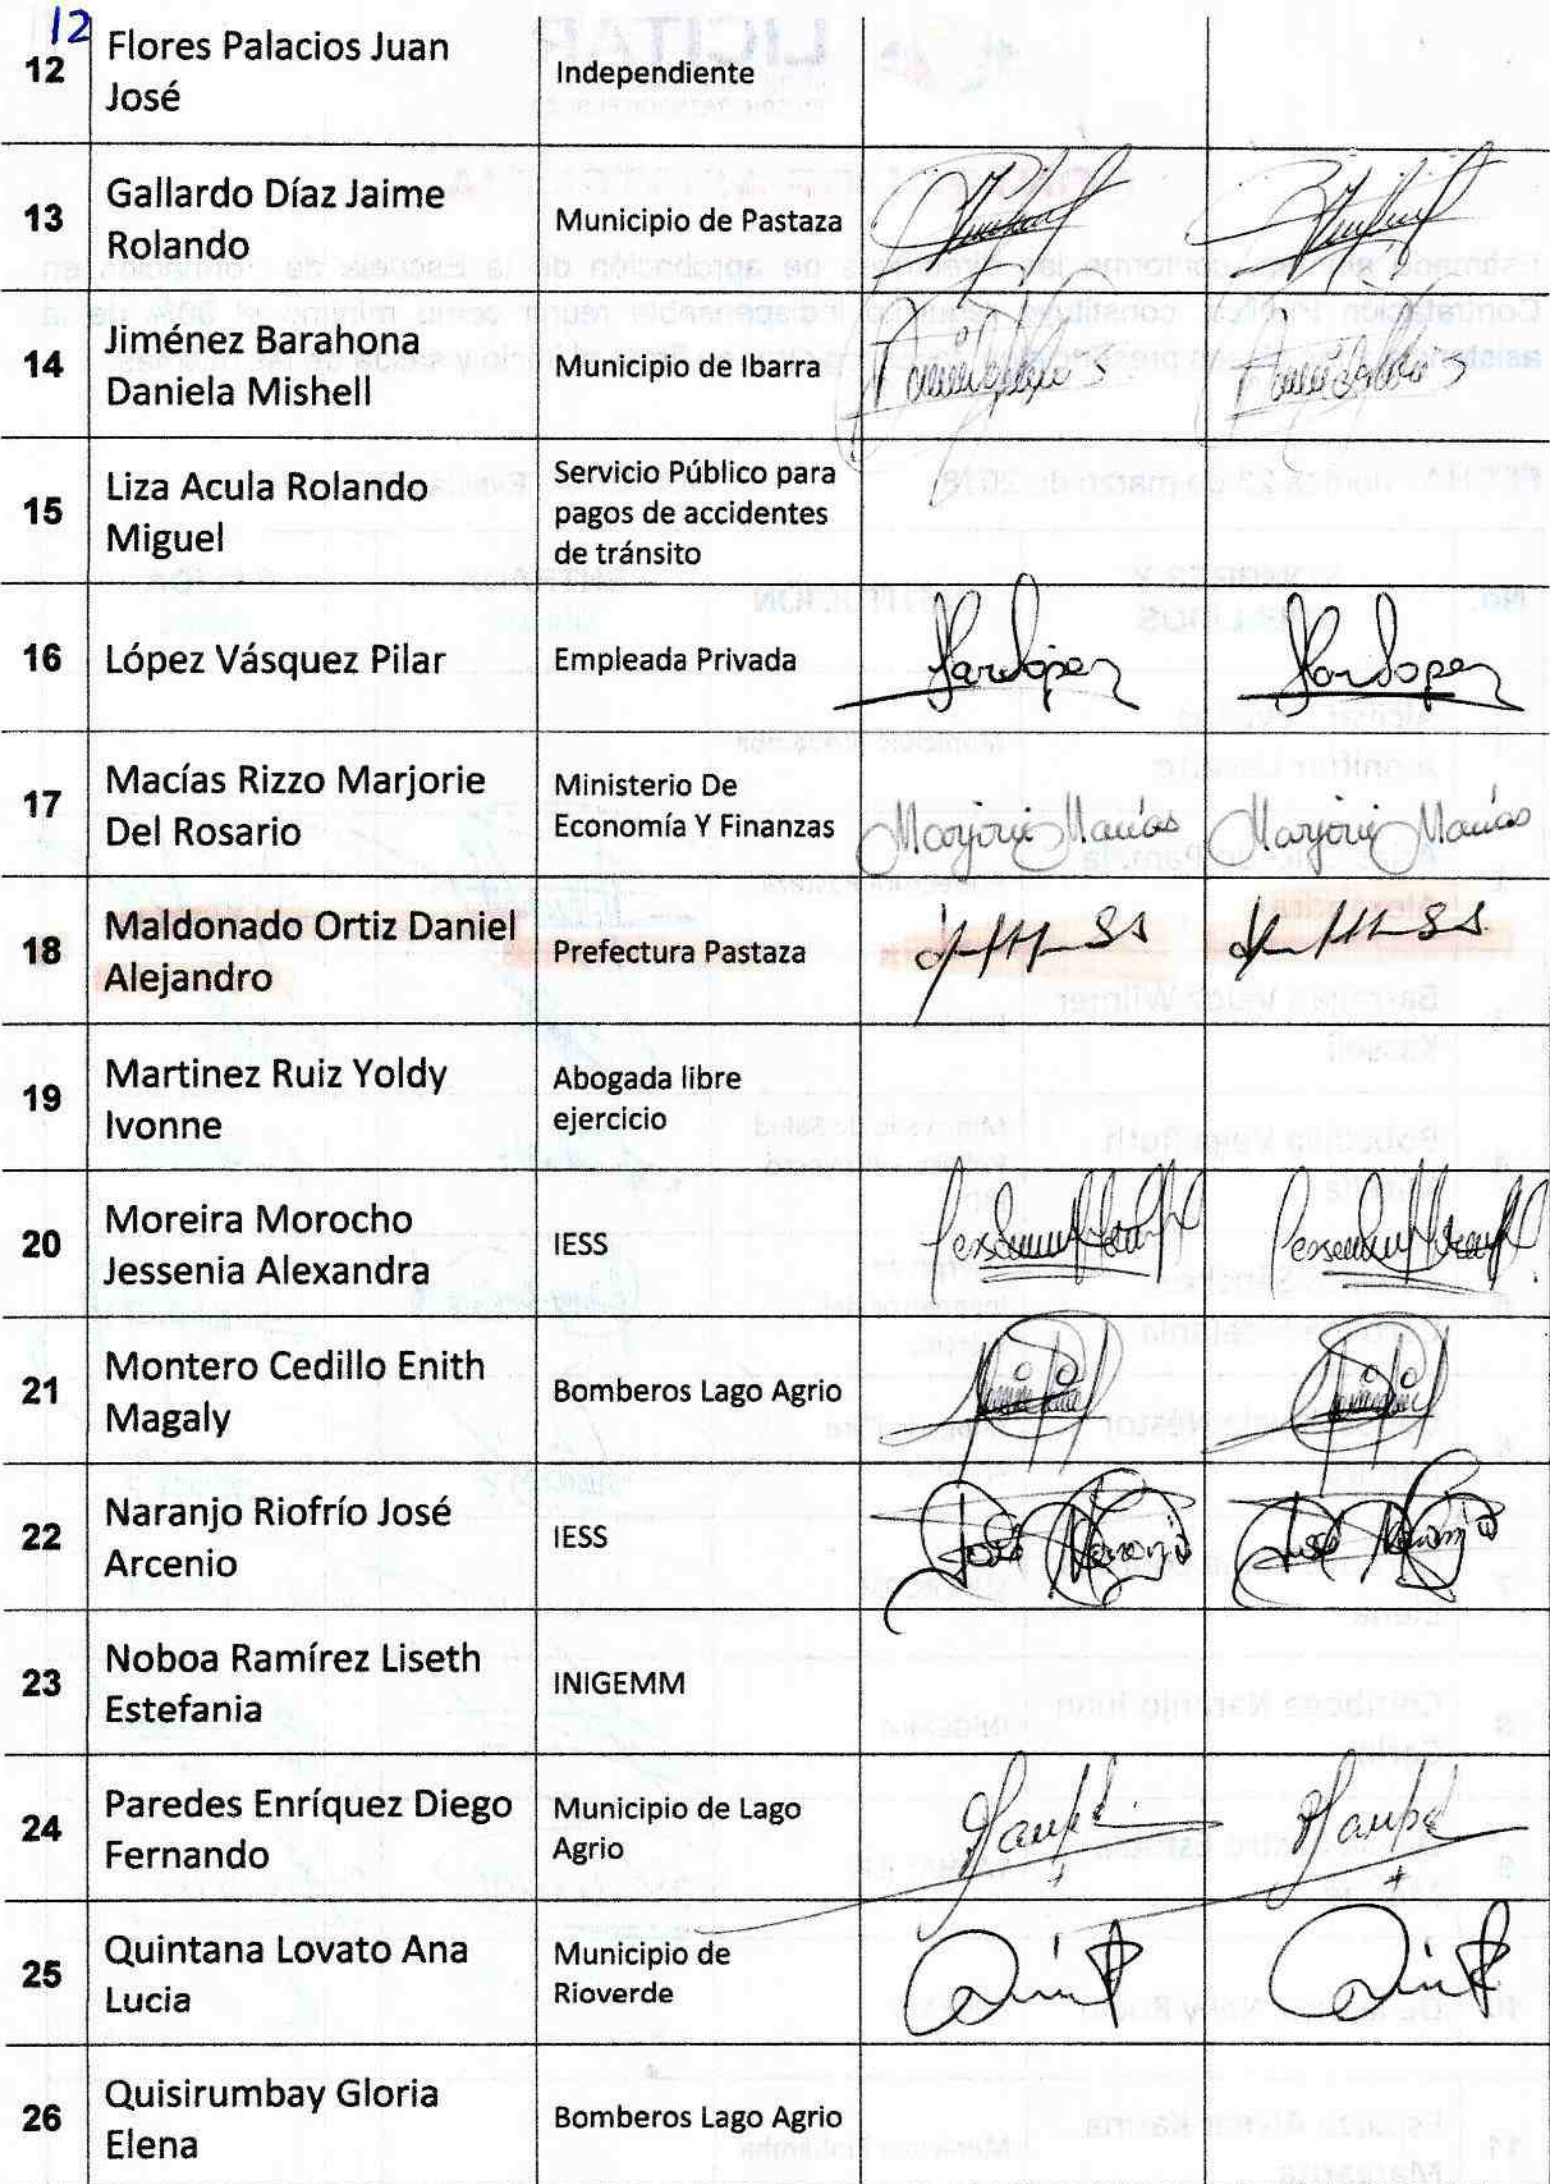 12
12
Flores Palacios Juan
José
Independiente
13
Gallardo Díaz Jaime
Rolando
Municipio de Pastaza
14
Jiménez Barahona
Daniela Mishell
Municipio de Ibarra
15
Liza Acula Rolando
Miguel
Servicio Público para
pagos de accidentes
de tránsito
16
López Vásquez Pilar
Empleada Privada
17
Macías Rizzo Marjorie
Del Rosario
Ministerio De
Economía Y Finanzas
Marjorie Macías
Marjorie Macías
18
Maldonado Ortiz Daniel
Alejandro
Prefectura Pastaza
19
Martinez Ruiz Yoldy
Ivonne
Abogada libre
ejercicio
20
Moreira Morocho
Jessenia Alexandra
IESS
21
Montero Cedillo Enith
Magaly
Bomberos Lago Agrio
22
Naranjo Riofrío José
Arcenio
IESS
José Naranjo
José Naranjo
23
Noboa Ramírez Liseth
Estefania
INIGEMM
24
Paredes Enríquez Diego
Fernando
Municipio de Lago
Agrio
25
Quintana Lovato Ana
Lucia
Municipio de
Rioverde
26
Quisirumbay Gloria
Elena
Bomberos Lago Agrio